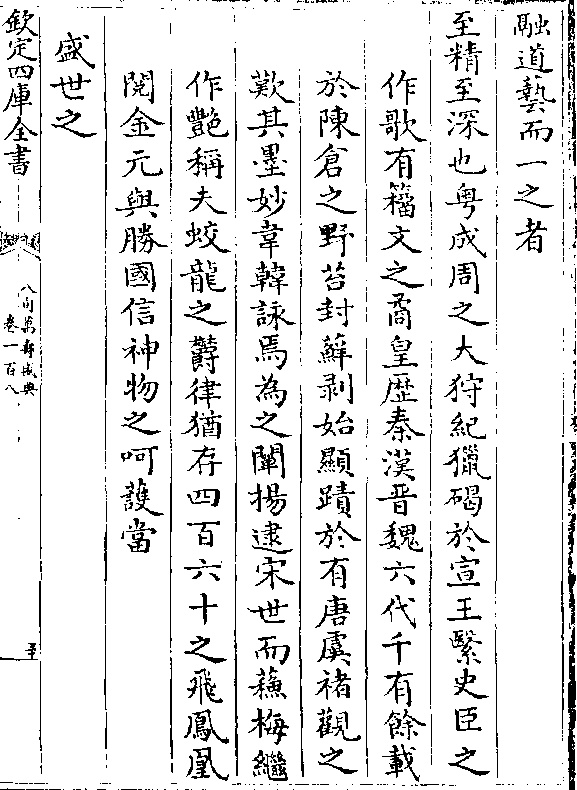 融道藝而一之者
至精至深也粤成周之大狩紀獵碣於宣王繄史臣之
作歌有籀文之矞皇歴秦漢晋魏六代千有餘載
於陳倉之野苔封蘚剥始顯蹟於有唐虞禇觀之
歎其墨妙韋韓詠焉為之闡揚逮宋世而蘇梅繼
作艶稱夫蛟龍之欝律猶存四百六十之飛鳳凰
閱金元與勝國信神物之呵䕶當
盛世之
欽定四庫全書
八旬萬壽盛典
卷一百八